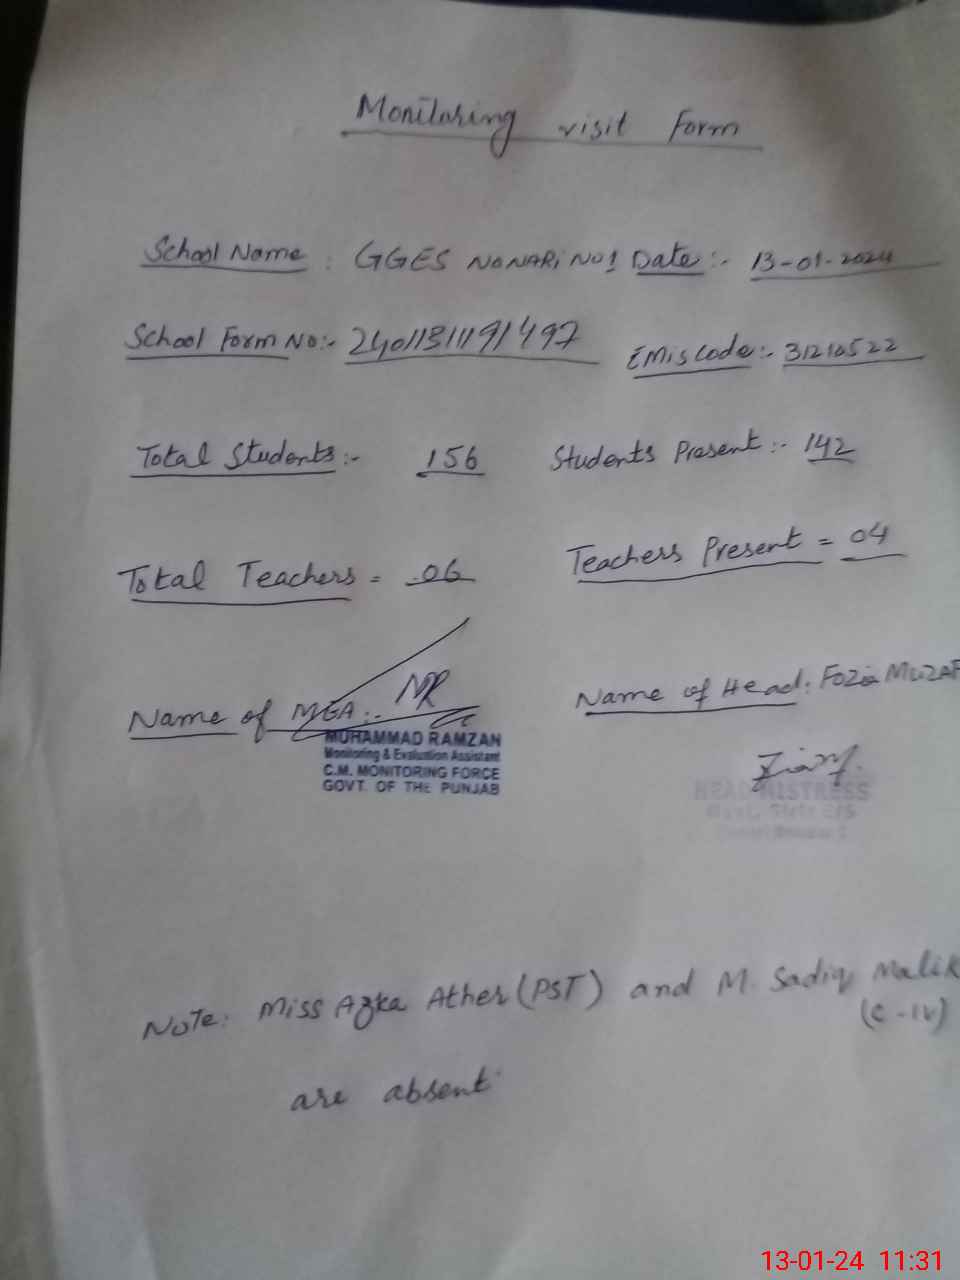 Monitoring visit Form
School Name : GGES NONARI NO1 Date:- 13-01-2024
School Form No:- 2401131119/497
EMis Code:- 31210522
Total Students:- 156 Students Present:- 142
Total Teachers = 06 Teachers Present = 04
Name of MEA:- MR
Name of Head: Fozia MUZAF
MUHAMMAD RAMZAN
Monitoring & Evaluation Assistant
C.M. MONITORING FORCE
GOVT. OF THE PUNJAB
HEADMISTRESS
Note: Miss Azka Ather (PST) and M. Sadiq Malik
(C-IV)
are absent
13-01-24 11:31